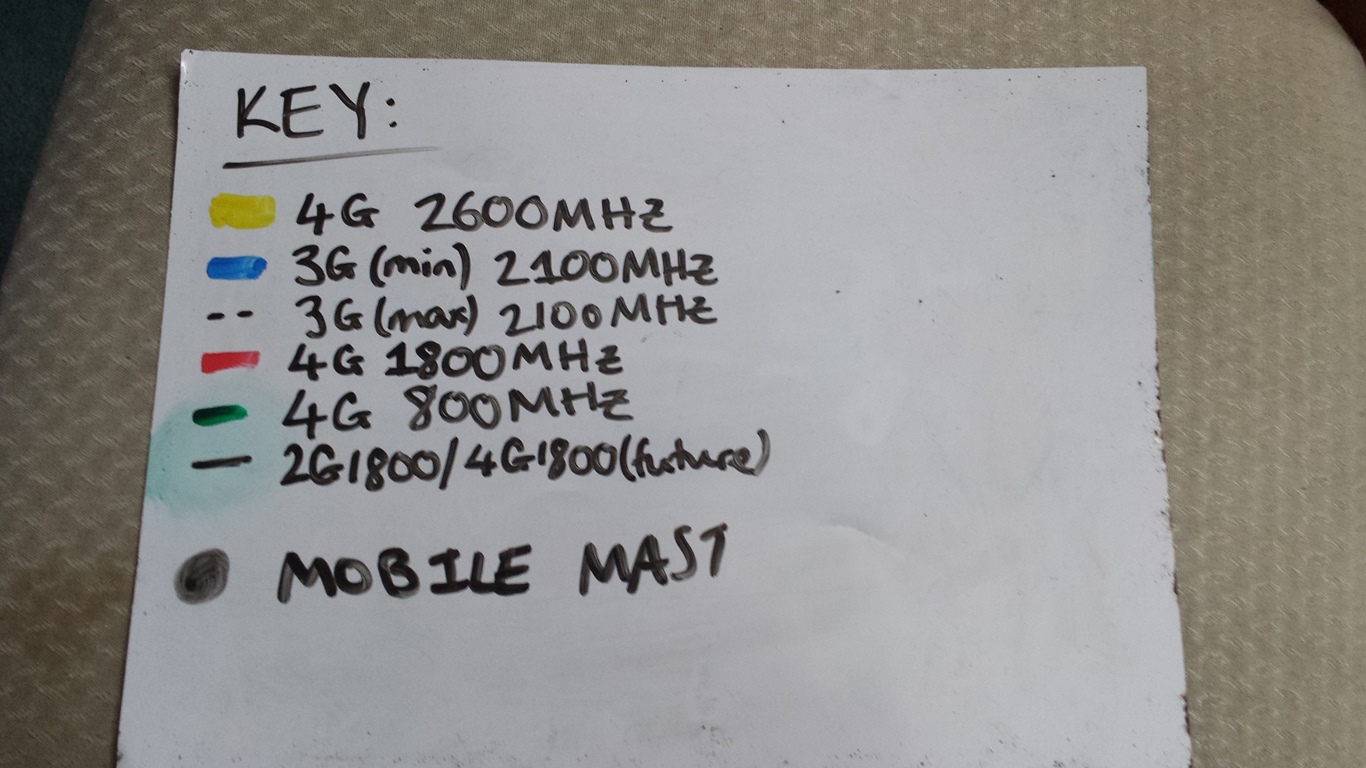 KEY:
4G 2600MHZ
3G (min) 2100MHZ
3G (max) 2100MHZ
4G 1800MHZ
4G 800MHZ
2G1800/4G1800(future)
MOBILE MAST